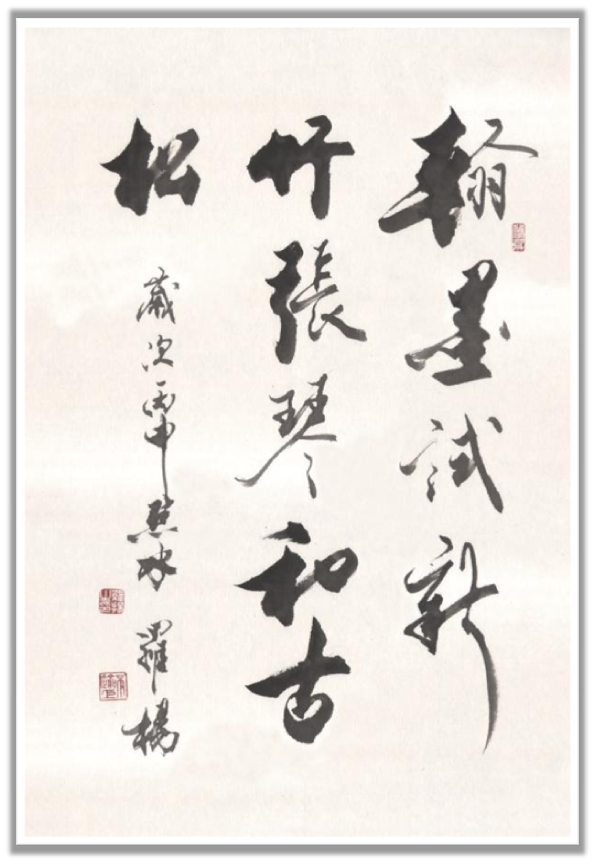 翰墨试新
竹張琴和古
松
歲次丙申
羅楊